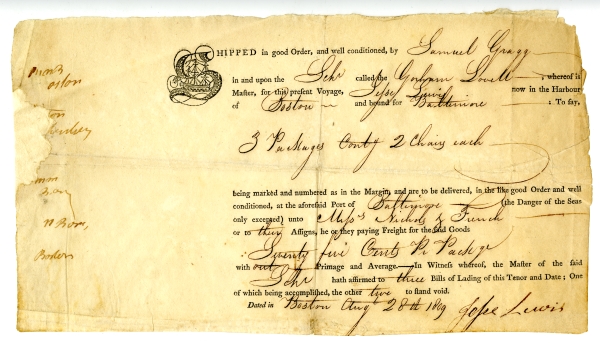 SHIPPED in good Order, and well conditioned, by Samuel Gragg
in and upon the Schr called the Gorham Lovell, whereof is
Master, for this present Voyage, Jesse Lewis now in the Harbour
of Boston and bound for Baltimore : To say,
3 Packages Contg 2 Chairs each
being marked and numbered as in the Margin, and are to be delivered, in the like good Order and well
conditioned, at the aforesaid Port of Baltimore (the Danger of the Seas
only excepted) unto Messs Nichols & French
or to their Assigns, he or they paying Freight for the said Goods
Seventy five Cents Pr Package
with out Primage and Average. In Witness whereof, the Master of the said
Schr hath affirmed to three Bills of Lading of this Tenor and Date; One
of which being accomplished, the other two to stand void.
Dated in Boston Augt 28th 1809 Jesse Lewis